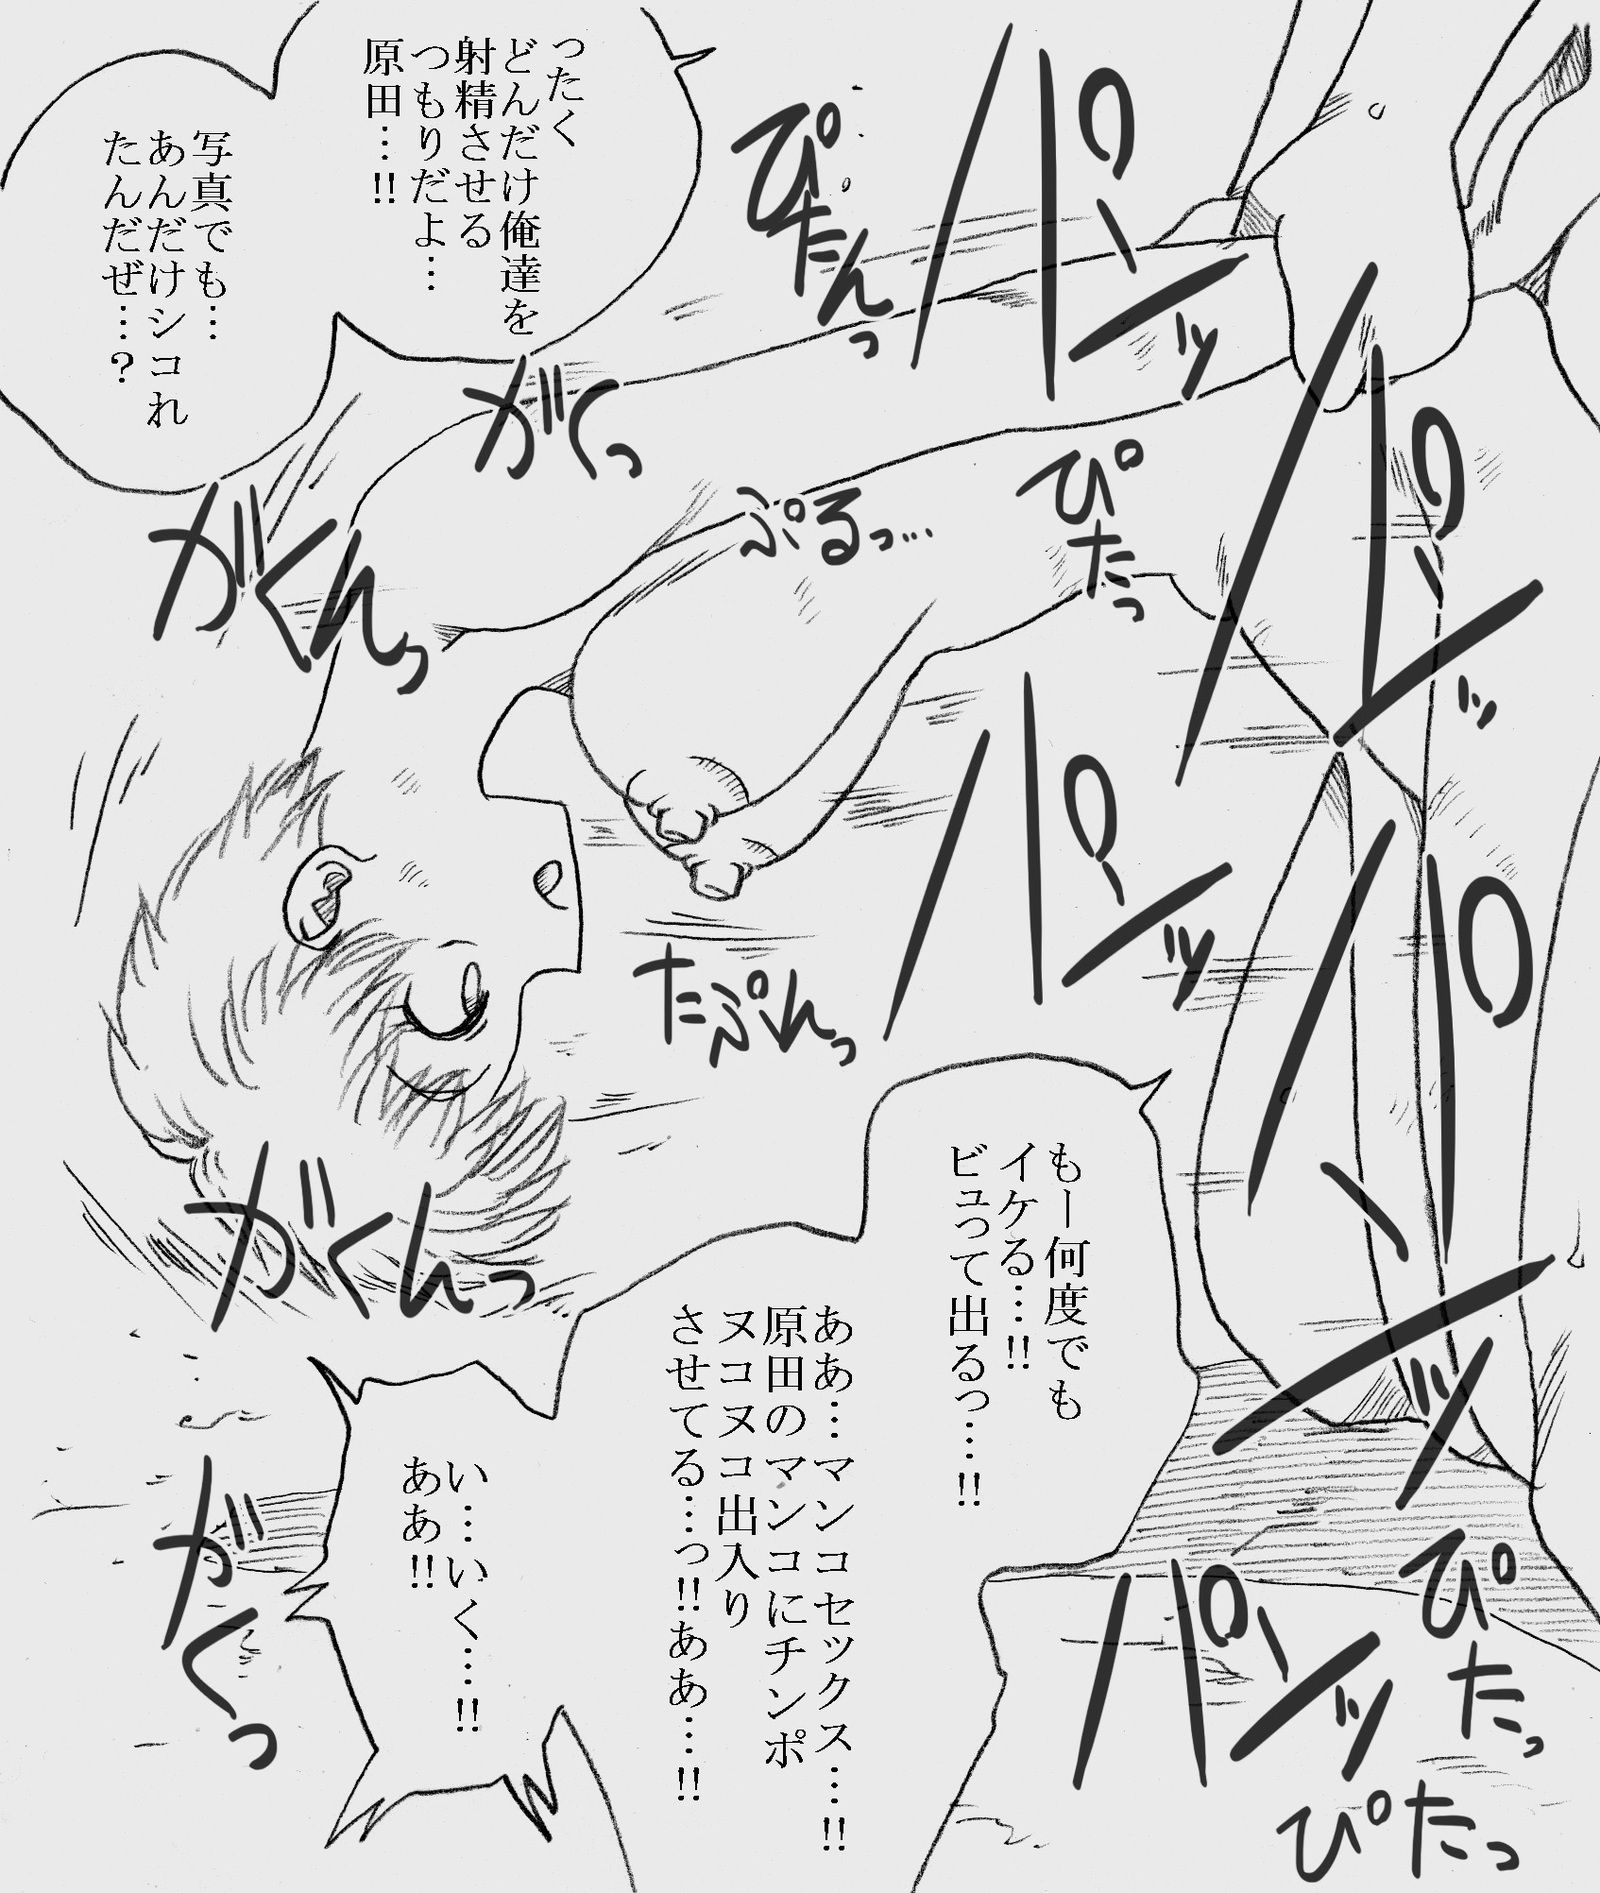 パンッ
ぴたんっ
パンッ
ぴたっ
ったく
どんだけ俺達を
射精させる
つもりだよ…
原田…!!
写真でも…
あんだけシコれ
たんだぜ…?
がくっ
がくんっ
ぷるっ…
パンッ
たぷれっ
パンッ
もー何度でも
イケる…!!
ビュって出るっ…!!
ああ…マンコセックス…!!
原田のマンコにチンポ
ヌコヌコ出入り
させてる…っ!!ああ…!!
い…いく…!!
ああ!!
がくんっ
がくっ
ぴたっ
パンッ
ぴたっ